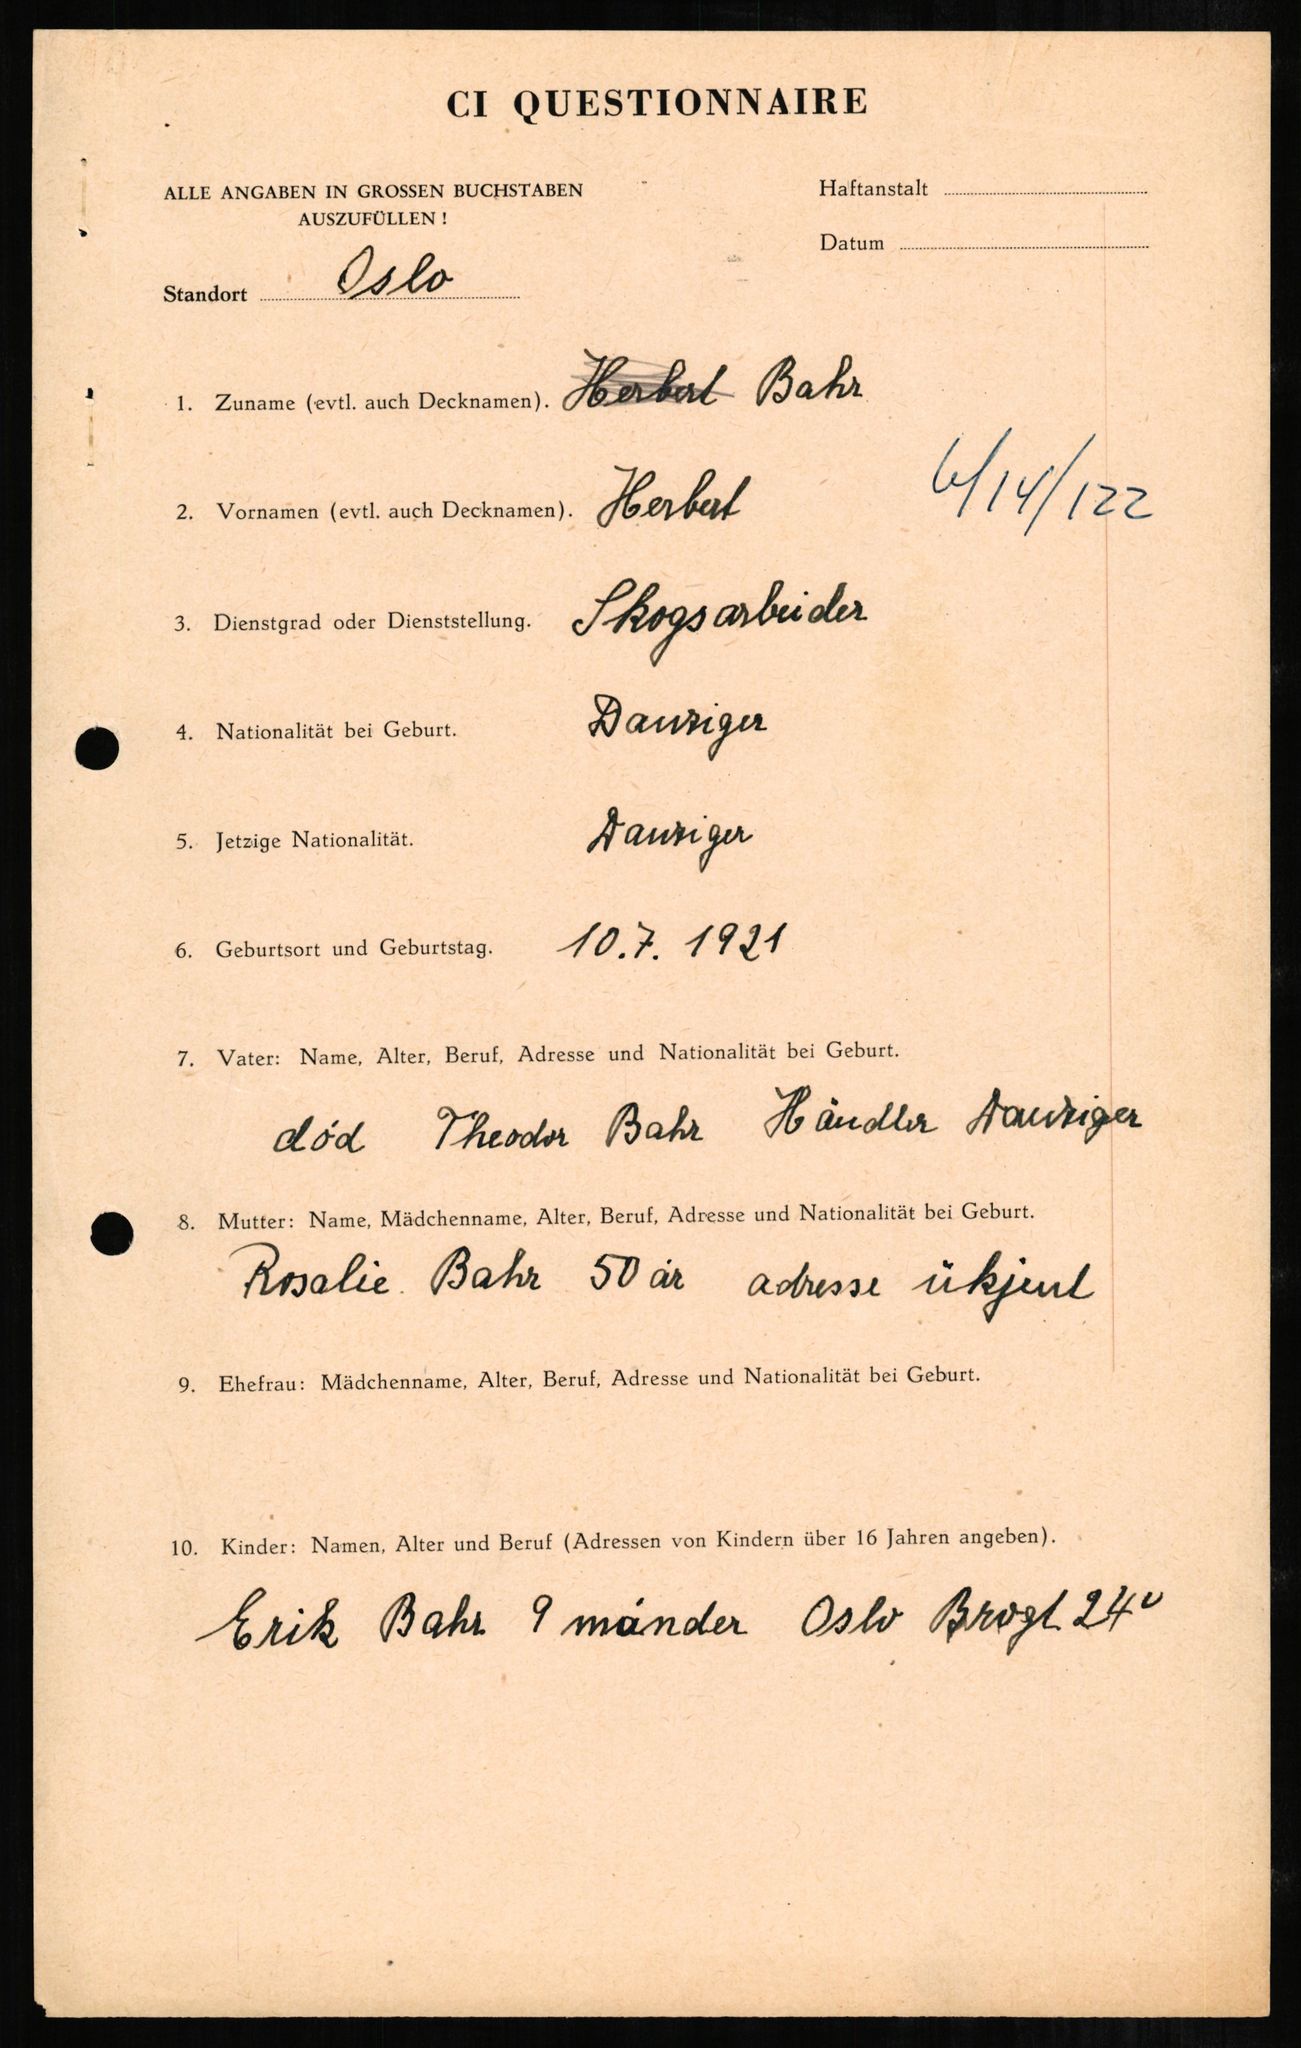 CI QUESTIONNAIRE
ALLE ANGABEN IN GROSSEN BUCHSTABEN
AUSZUFÜLLEN!
Haftanstalt
Datum
Standort Oslo
1. Zuname (evtl. auch Decknamen). Herbert Bahr
2. Vornamen (evtl. auch Decknamen). Herbert
/14/122
3. Dienstgrad oder Dienststellung. Skogsarbeider
4. Nationalität bei Geburt. Danziger
5. Jetzige Nationalität. Danziger
6. Geburtsort und Geburtstag. 10.7. 1921
7. Vater: Name, Alter, Beruf, Adresse und Nationalität bei Geburt.
död Theodor Bahr Händler Danziger
8. Mutter: Name, Mädchenname, Alter, Beruf, Adresse und Nationalität bei Geburt.
Rosalie Bahr 50 år adresse ükjent
9. Ehefrau: Mädchenname, Alter, Beruf, Adresse und Nationalität bei Geburt.
10. Kinder: Namen, Alter und Beruf (Adressen von Kindern über 16 Jahren angeben).
Erik Bahr 9 månder Oslo Brogt 24